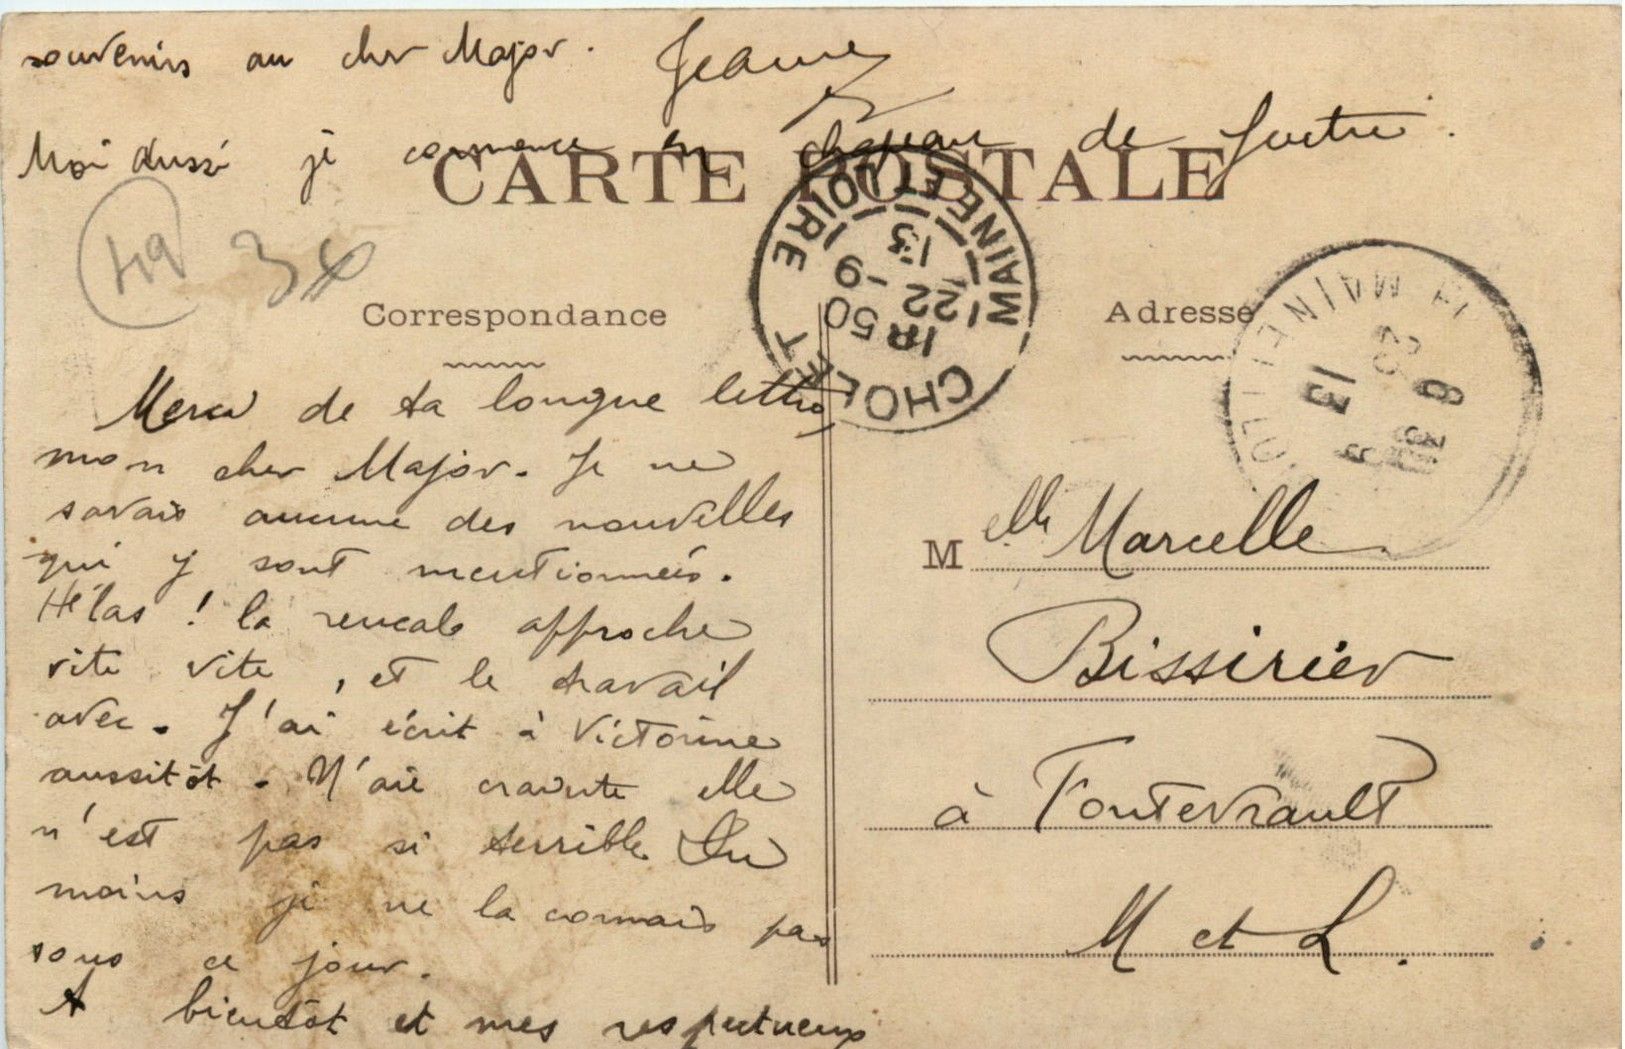 souvenirs au cher Major. Jeanne
Moi aussi je commence un chapeau de feutre.
CARTE POSTALE
Correspondance
Adresse
CHOLET
MAINE ET LOIRE
1R 50
22 -9
13
MAINE
13
Merci de ta longue lettre
mon cher Major. Je ne
savais aucune des nouvelles
qui y sont mentionnées.
Hélas ! la rentrée approche
vite vite, et le travail
avec. J'ai écrit à Victorine
aussitôt. N'aie crainte elle
n'est pas si terrible. Du
moins je ne la connais pas
sous ce jour.
A bientôt et mes respectueux
Melle Marcelle
Bissirier
à Fontevrault
M et L.